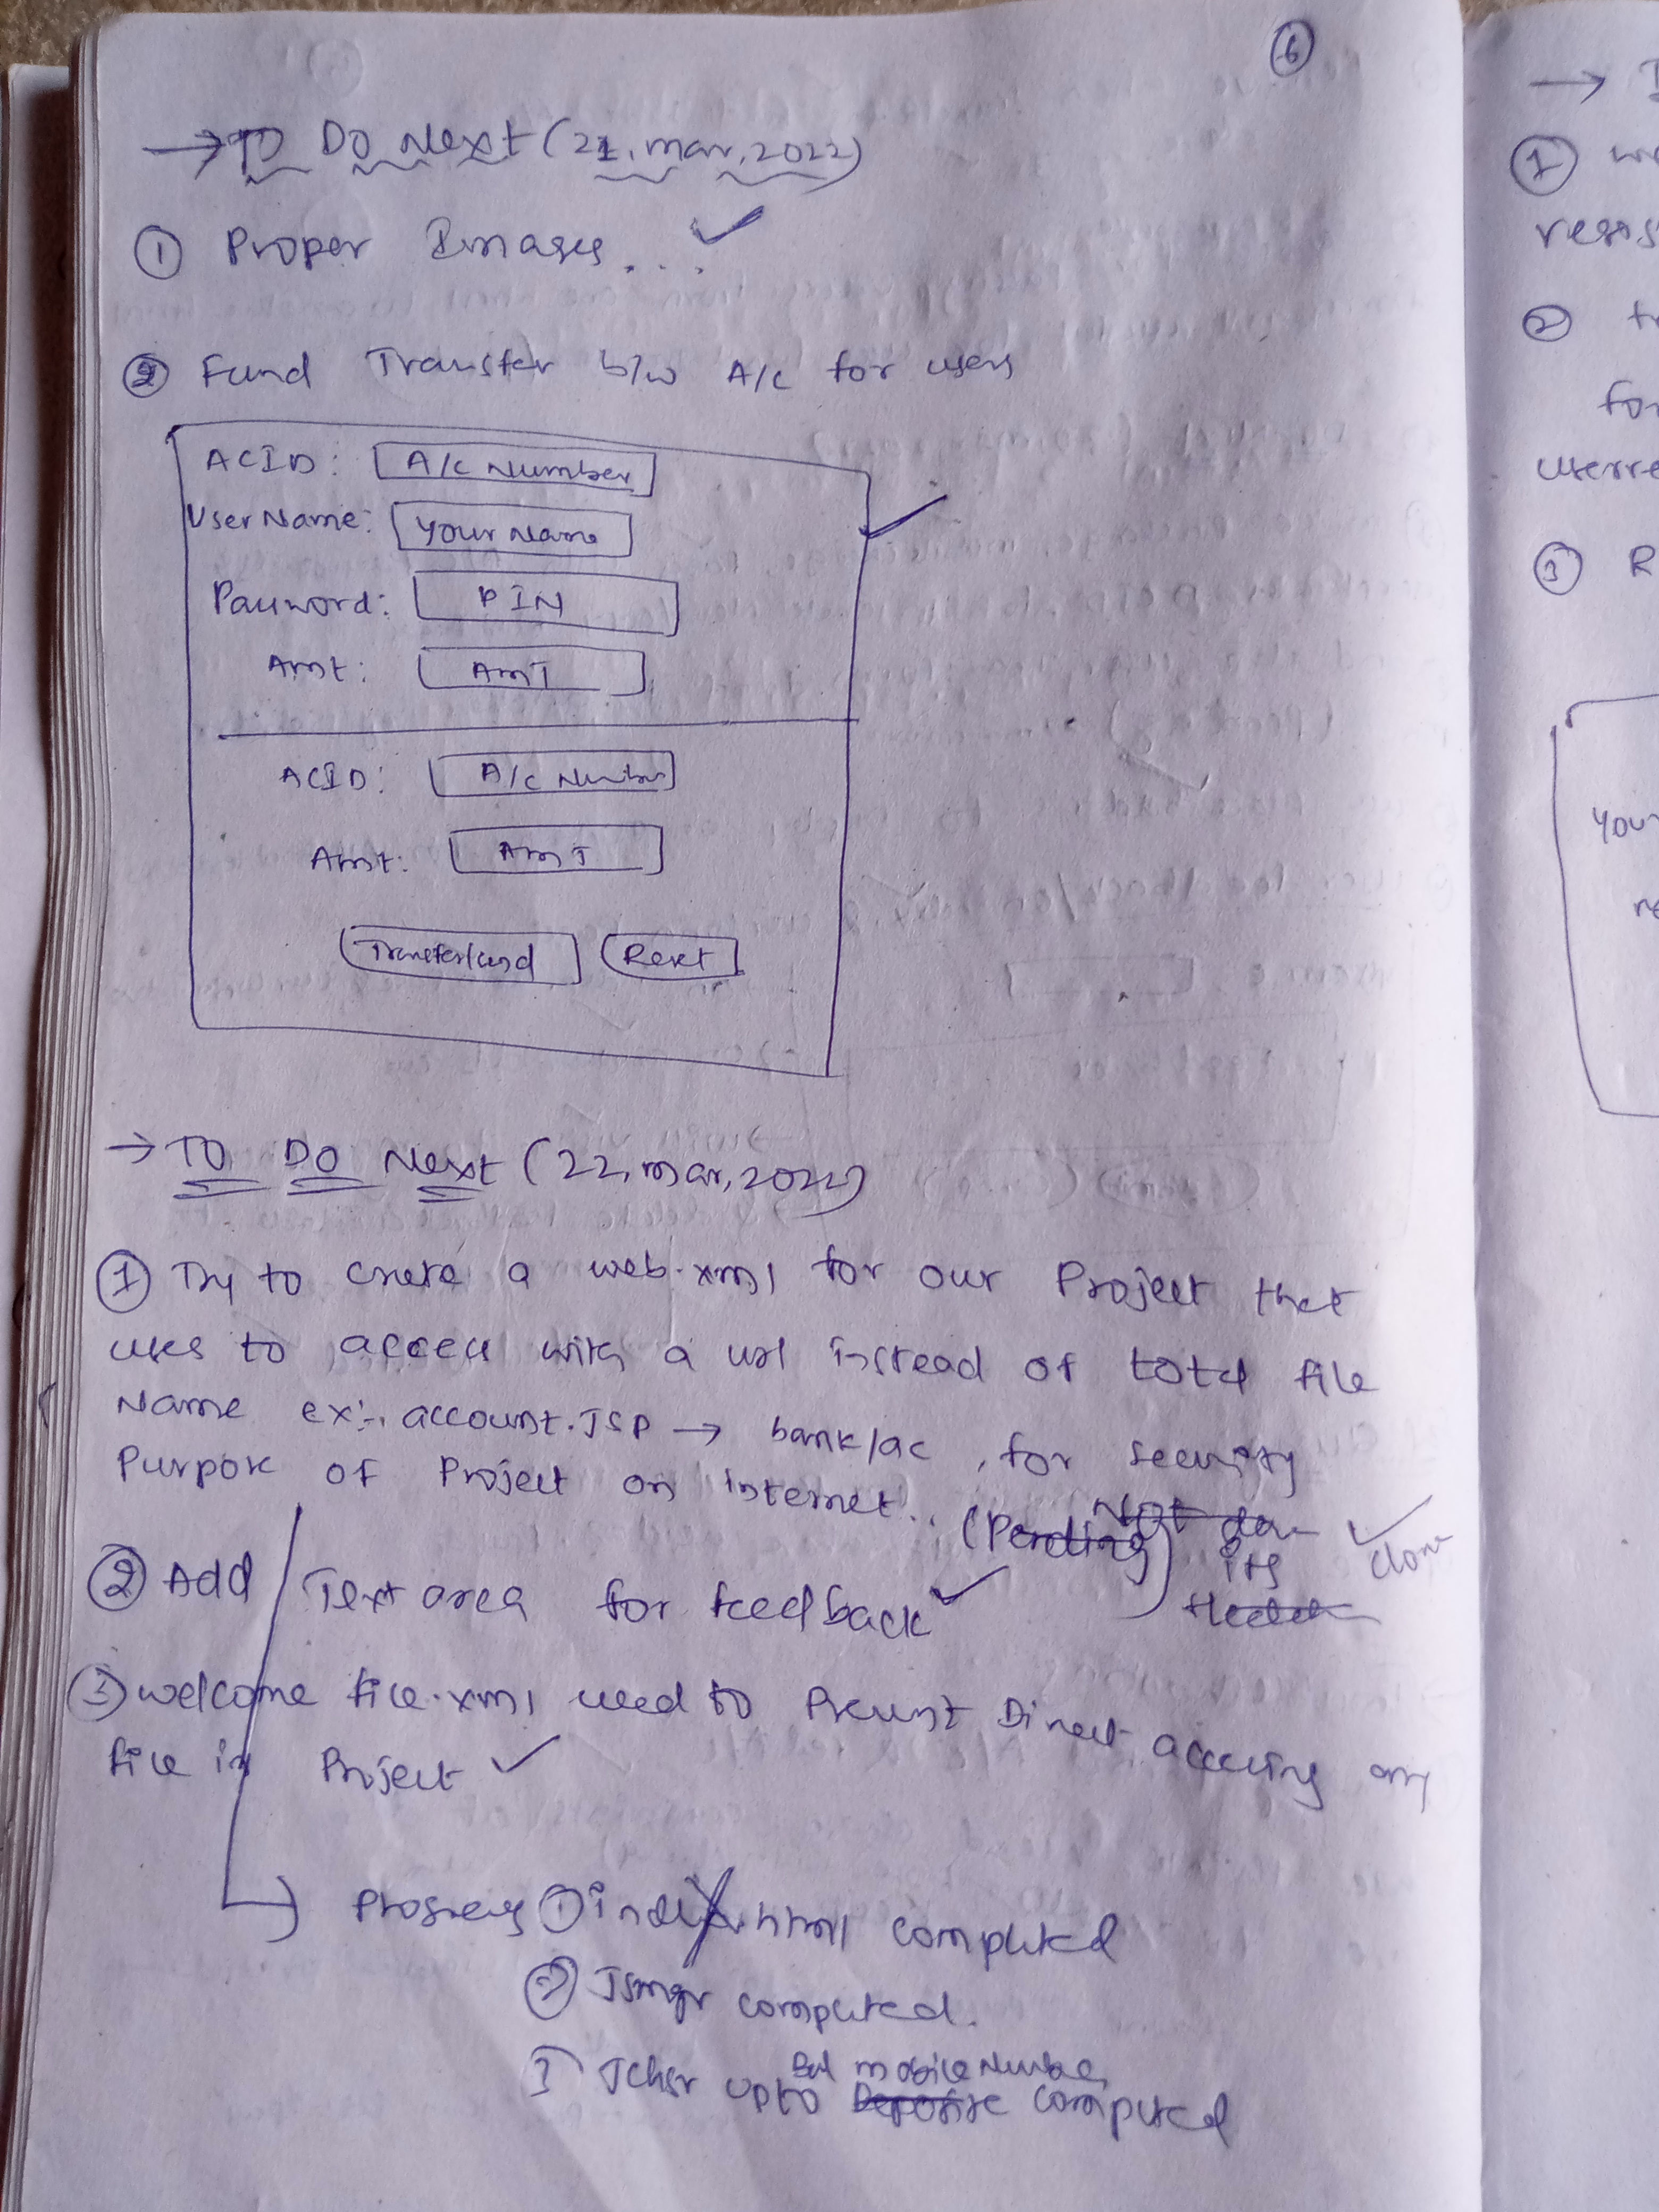 6
→ TO Do Next (21, mar, 2022)
① Proper Images... ✓
② Fund Transfer b/w A/c for users
ACID: A/c Number
User Name: Your Name
Password: PIN
Amt: AMT
ACID: A/c Number
Amt: AMT
Transferfund Reset
→ TO DO Next (22, mar, 2022)
① Try to create a web.xml for our Project that
uses to access with a url instead of total file
Name ex:- account.JSP → bank/ac , for security
Purpose of Project on internet.. (Pending) Not ✓ done
② Add Text area for feedback ✓
③ welcome file.xml used to Prevent Direct accessing any
file in Project ✓
Progress ① index.html completed
② Jsmgr completed.
3 upto mobile Number Deposite completed
→
① we
②
for
③ R